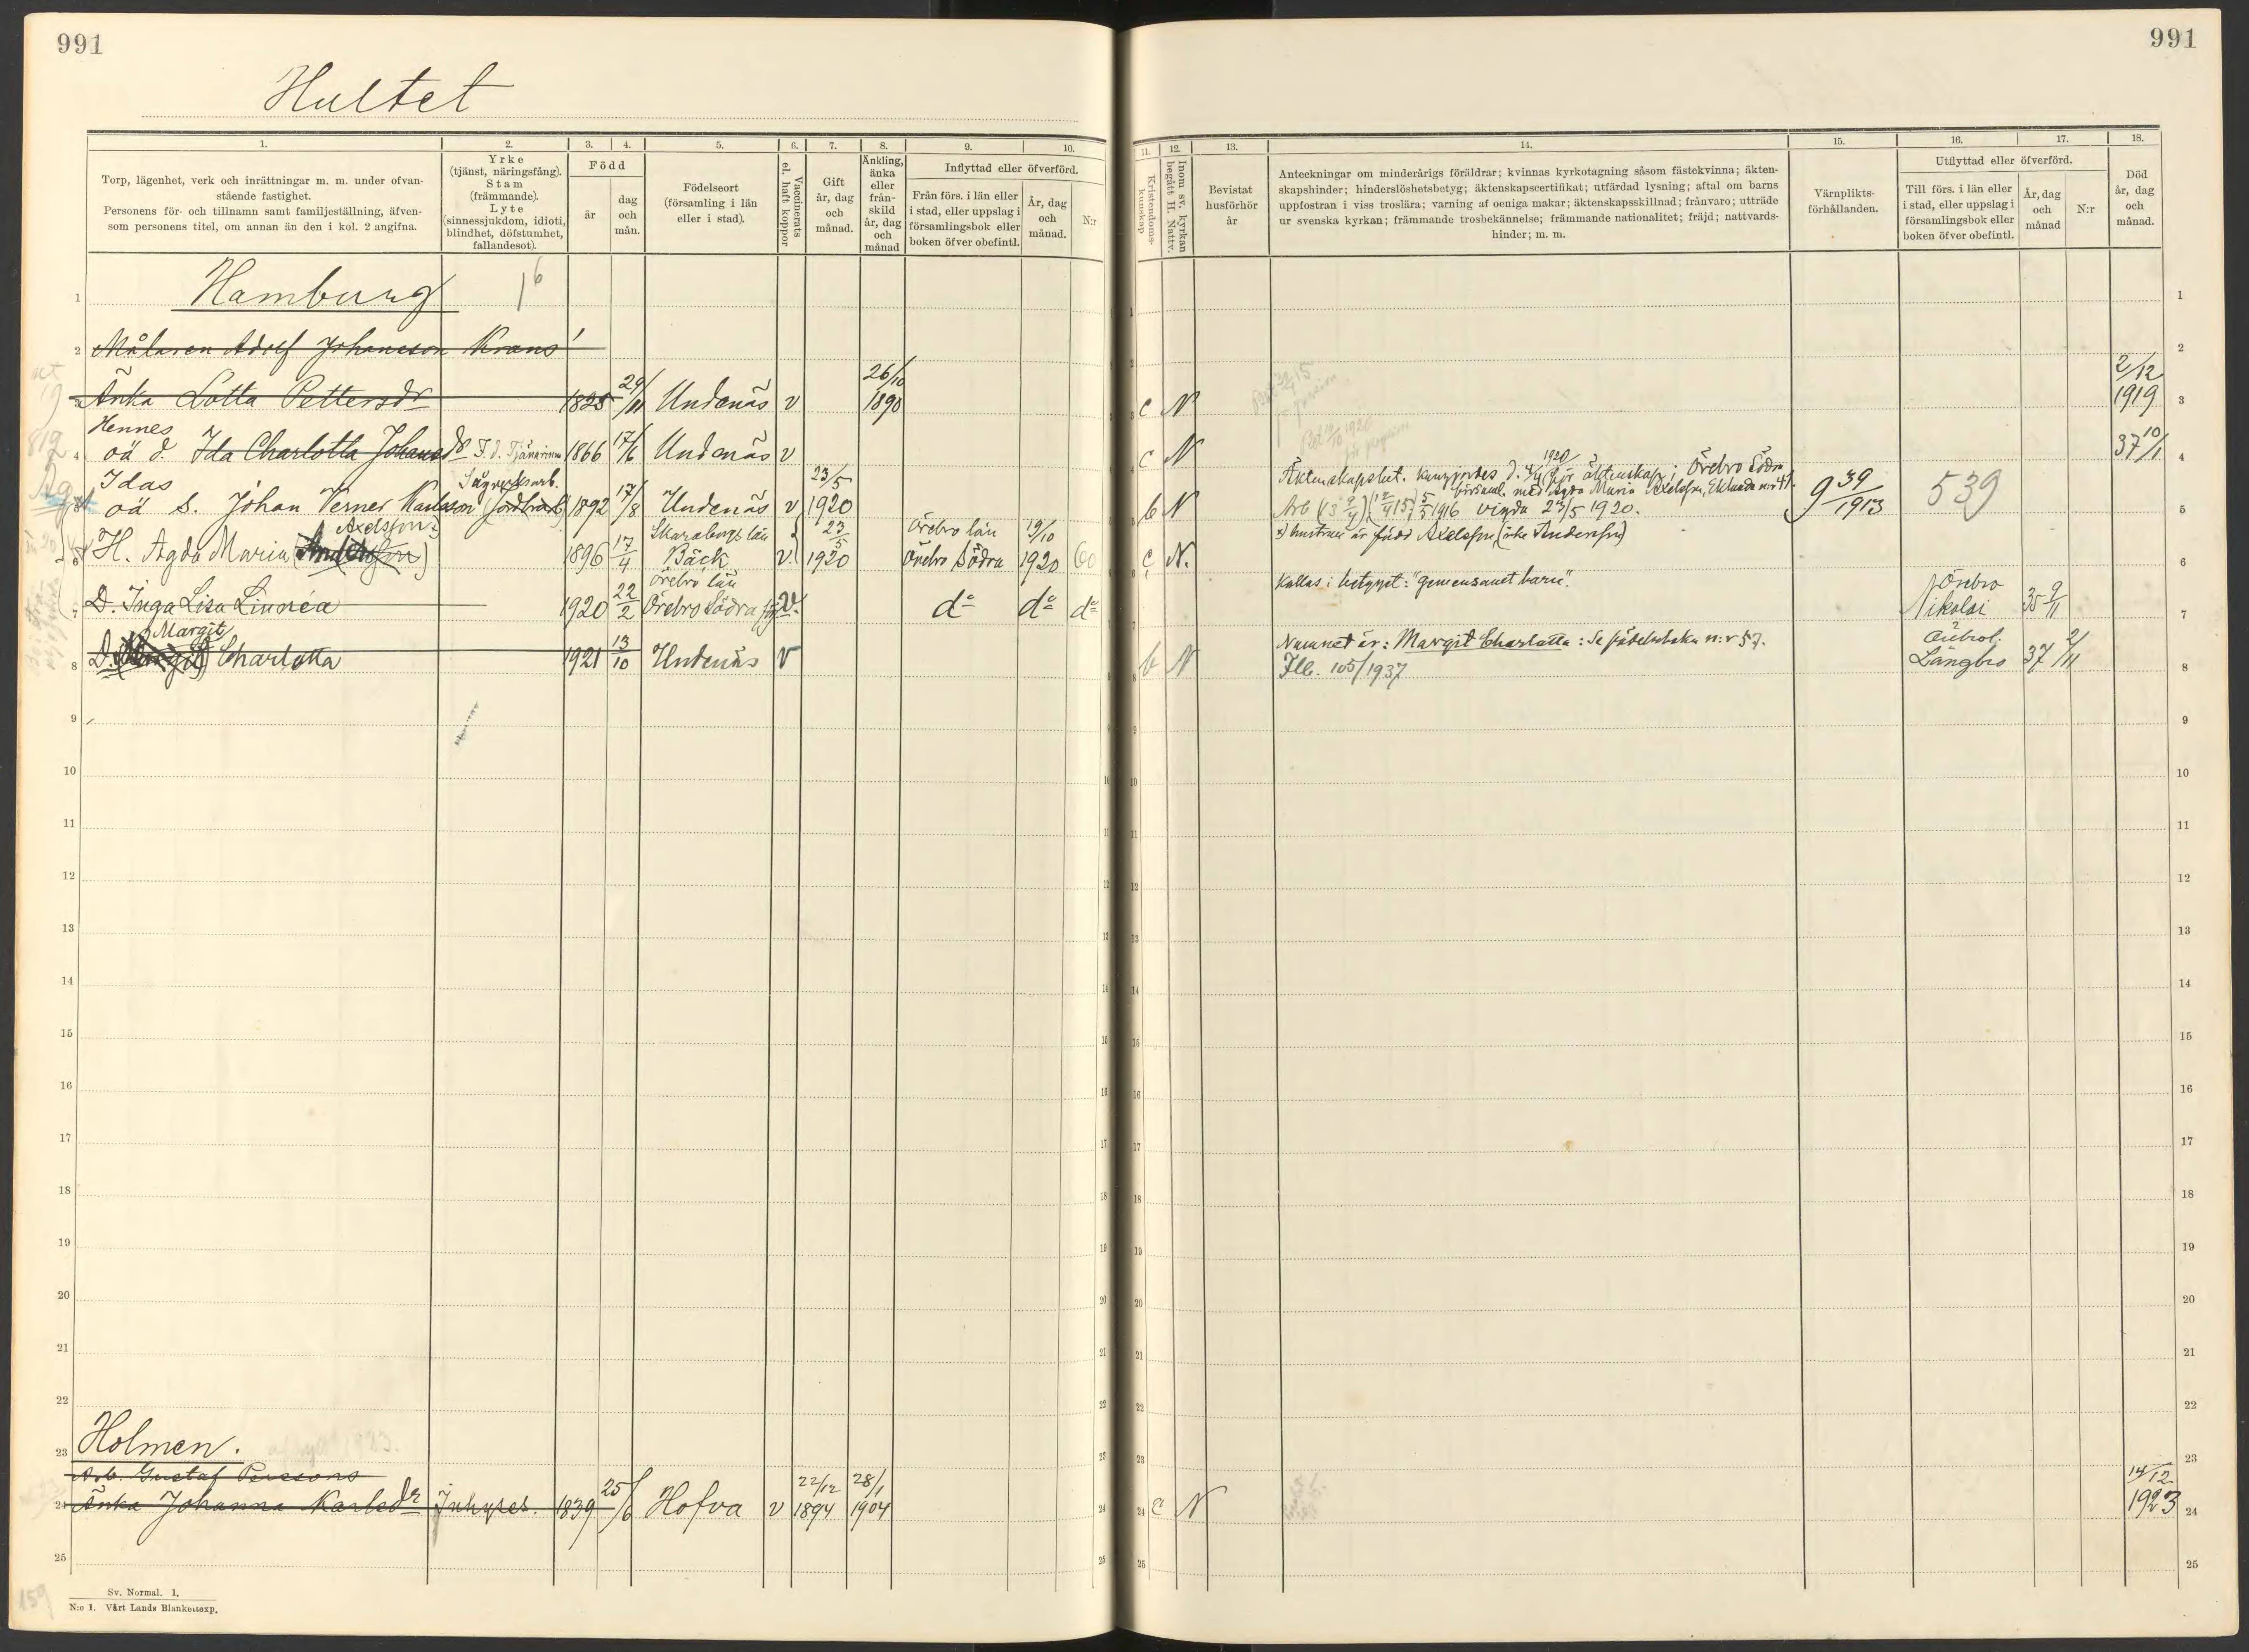 991
991
Hultet
1.
2.
3.
4.
5.
6.
7.
8.
9.
10.
11.
12.
13.
14.
15.
16.
17.
18.
Torp, lägenhet, verk och inrättningar m. m. under ofvan-
stående fastighet.
Personens för- och tillnamn samt familjeställning, äfven-
som personens titel, om annan än den i kol. 2 angifna.
Yrke
(tjänst, näringsfång).
Stam
(främmande).
Lyte
(sinnessjukdom, idioti,
blindhet, döfstumhet,
fallandesot).
Född
år
dag
och
mån.
Födelseort
(församling i län
eller i stad).
Vaccinerats
el. haft koppor
Gift
år, dag
och
månad.
Änkling,
änka
eller
från-
skild
år, dag
och
månad
Inflyttad eller öfverförd.
Från förs. i län eller
i stad, eller uppslag i
församlingsbok eller
boken öfver obefintl.
År, dag
och
månad.
N:r
Kristendoms-
kunskap
Inom sv. kyrkan
begått H. Nattv.
Bevistat
husförhör
år
Anteckningar om minderårigs föräldrar; kvinnas kyrkotagning såsom fästekvinna; äkten-
skapshinder; hinderslöshetsbetyg; äktenskapscertifikat; utfärdad lysning; aftal om barns
uppfostran i viss troslära; varning af oeniga makar; äktenskapsskillnad; frånvaro; utträde
ur svenska kyrkan; främmande trosbekännelse; främmande nationalitet; fräjd; nattvards-
hinder; m. m.
Värnplikts-
förhållanden.
Utflyttad eller öfverförd.
Till förs. i län eller
i stad, eller uppslag i
församlingsbok eller
boken öfver obefintl.
År, dag
och
månad
N:r
Död
år, dag
och
månad.
1 Hamburg 1
2 Målaren Adolf Johansson Krans 2
3 Änka Lotta Pettersdr 1825 Undenäs v 26/10 1890 c N 2/12 1919 3
Hennes
4 oä d. Ida Charlotta Johansdr F. d. Tjänarinna 1866 17/6 Undenäs v c N 37 10/1 4
Idas Sågverksarb.
5 oä s. Johan Verner Karlsson 1892 17/8 Undenäs v 23/5 1920 b N 9 39/1913 539 5
Örebro Södra
vigda 23/5 1920.
Axelsson
6 H. Agda Maria 1896 17/4 Skaraborgs län Bäck v. 23/5 1920 Örebro län Örebro Södra 19/10 1920 60 c N. 6
x) hustrun är född Axelsson (icke Andersson)
7 D. Inga Lisa Linnéa 1920 22/2 Örebro län Örebro Södra v. do do do Örebro Nikolai 35 9/11 7
Kallas i betyget: "gemensamt barn".
Margit
8 D. Charlotta 1921 13/10 Undenäs v b N Längbro 37 2/11 8
Namnet är: Margit Charlotta: Se födelseboken n:r 57.
Flb. 105/1937
9 9
10 10
11 11
12 12
13 13
14 14
15 15
16 16
17 17
18 18
19 19
20 20
21 21
22 22
23 Holmen. 23
Arb. Gustaf Perssons
24 Änka Johanna Karlsdr Inhyses. 1839 25/6 Hofva v 22/12 1894 28/1 1904 c N 14/12 1923 24
25 25
Sv. Normal. 1.
N:o 1. Vårt Lands Blankettexp.
159